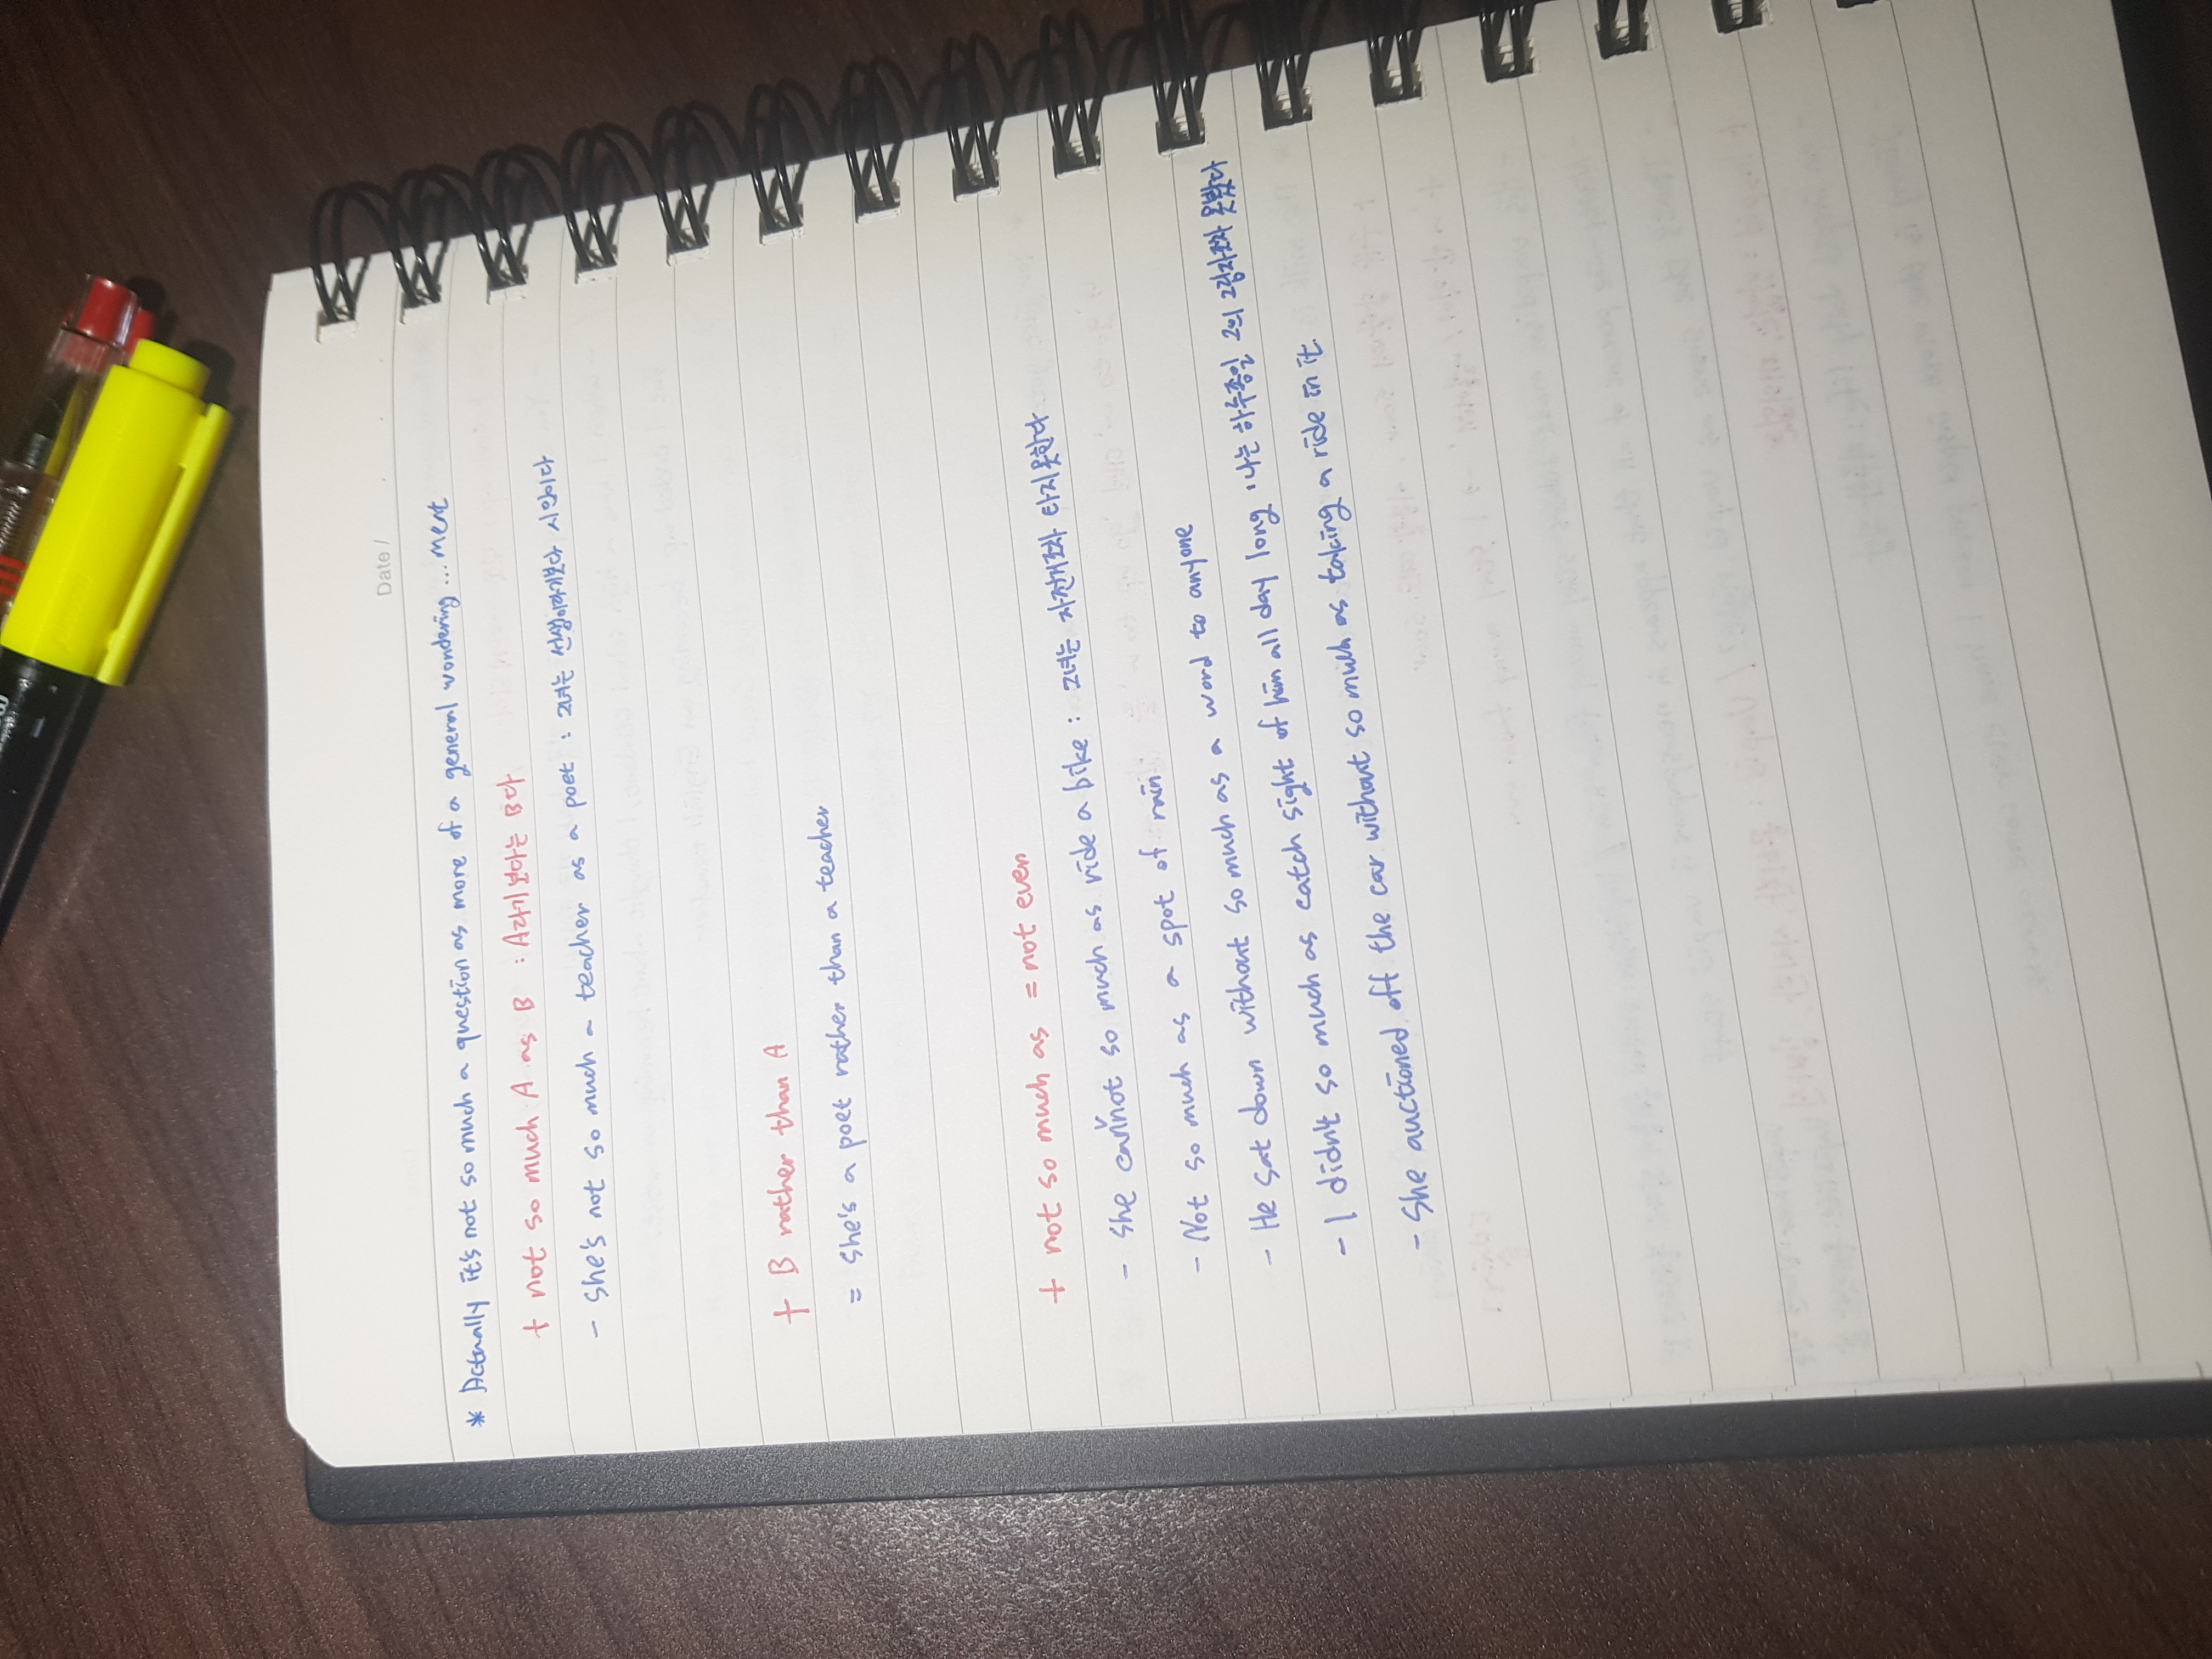 Date /
* Actually it's not so much a question as more of a general wondering ... ment
+ not so much A as B : A라기보다는 B다
- She's not so much a teacher as a poet : 그녀는 선생이라기보다 시인이다
+ B rather than A
= She's a poet rather than a teacher
+ not so much as = not even
- She cannot so much as ride a bike : 그녀는 자전거조차 타지 못한다
- Not so much as a spot of rain
- He sat down without so much as a word to anyone
- I didn't so much as catch sight of him all day long . 나는 하루종일 그의 그림자조차 못봤다
- She auctioned off the car without so much as taking a ride in it.